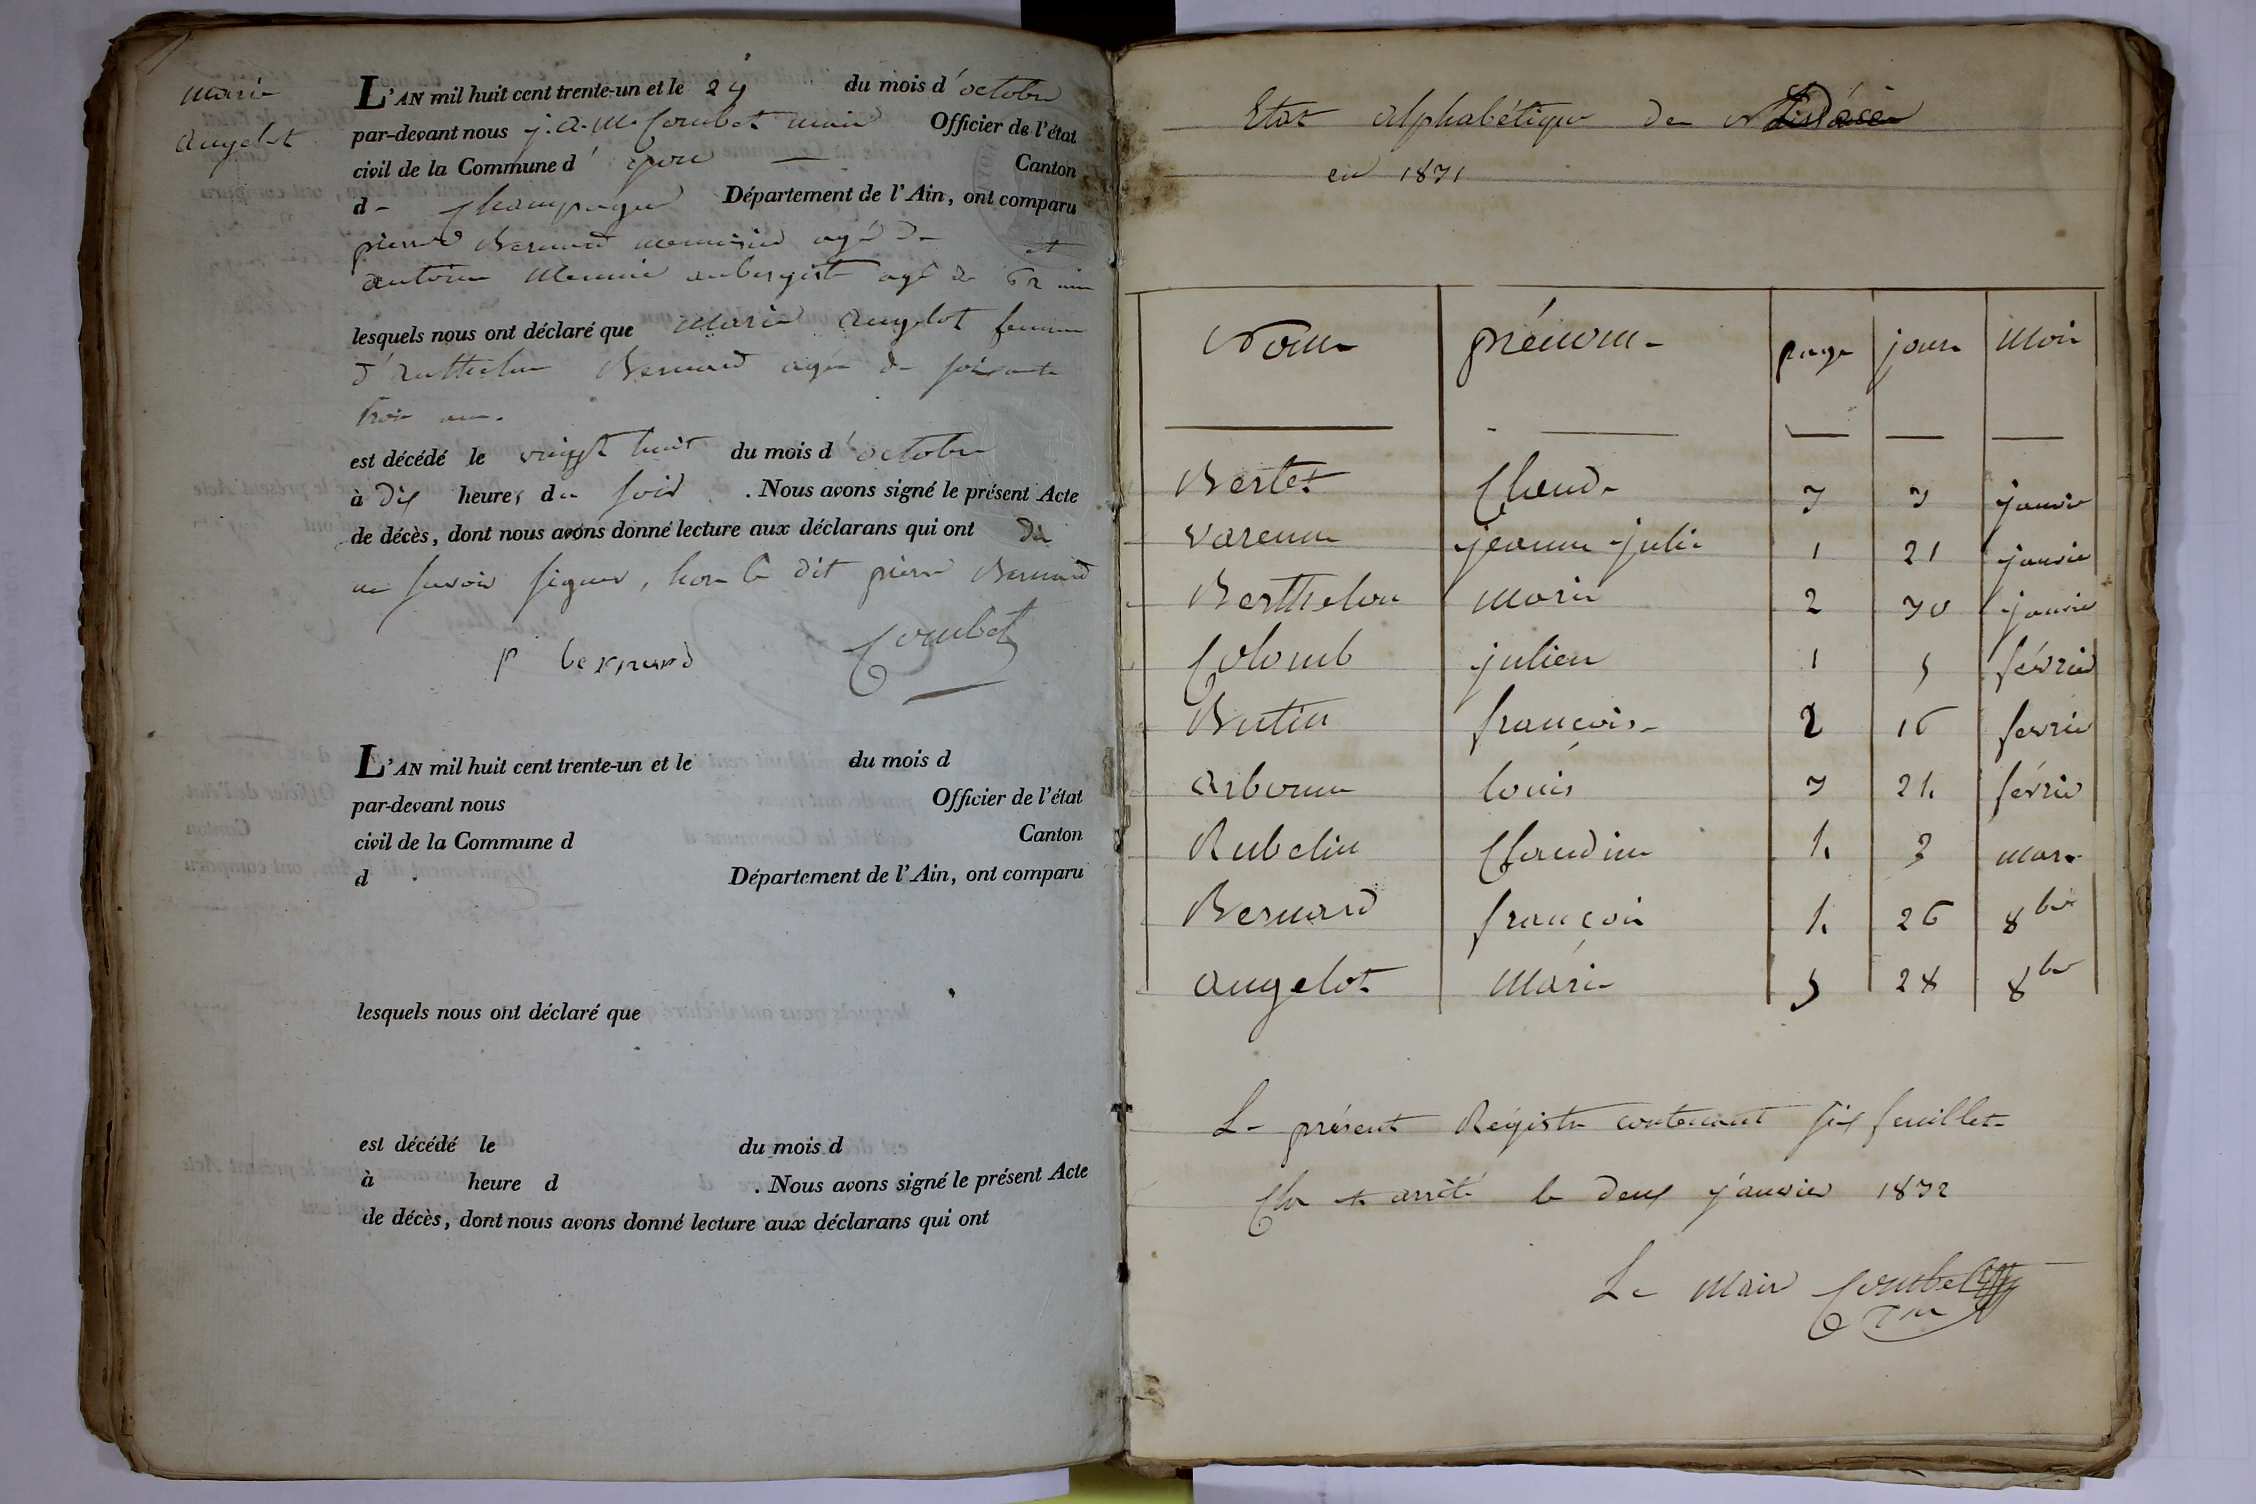 marie
angelot
L'AN mil huit cent trente-un et le 29 du mois d'octobre
par-devant nous j. a. m. Combet maire Officier de l'état
civil de la Commune d' yon — Canton
de Champagne Département de l'Ain, ont comparu
pierre Bernard menuisier agé de et
antoine aubergiste agé de 62 ans
lesquels nous ont déclaré que marie angelot femme
d'anthelme Bernard agée de soixante
trois ans.
est décédé le vingt huit du mois d'octobre
à dix heures du soir . Nous avons signé le présent Acte
de décès, dont nous avons donné lecture aux déclarans qui ont dit
ne savoir signer, hors le dit pierre Bernard
p bernard Combet
L'AN mil huit cent trente-un et le du mois d
par-devant nous Officier de l'état
civil de la Commune d Canton
d Département de l'Ain, ont comparu
lesquels nous ont déclaré que
est décédé le du mois d
à heure d . Nous avons signé le présent Acte
de décès, dont nous avons donné lecture aux déclarans qui ont
Etat alphabétique des Décès
en 1831
Noms prénoms pages jours Mois
Bertet Claude 3 3 janvier
Varenne jeanne julie 1 21 janvier
Berthelon marie 2 30 janvier
Colomb julien 1 5 février
Butin françois 2 16 fevrier
arbonne louis 3 24 février
Rubelin Claudine 4 3 mars
Bernard françois 4 26 8bre
angelot Marie 5 28 8bre
Le présent Régistre contenant six feuillets
Clos et arrêté le deux janvier 1832
Le Maire Combet